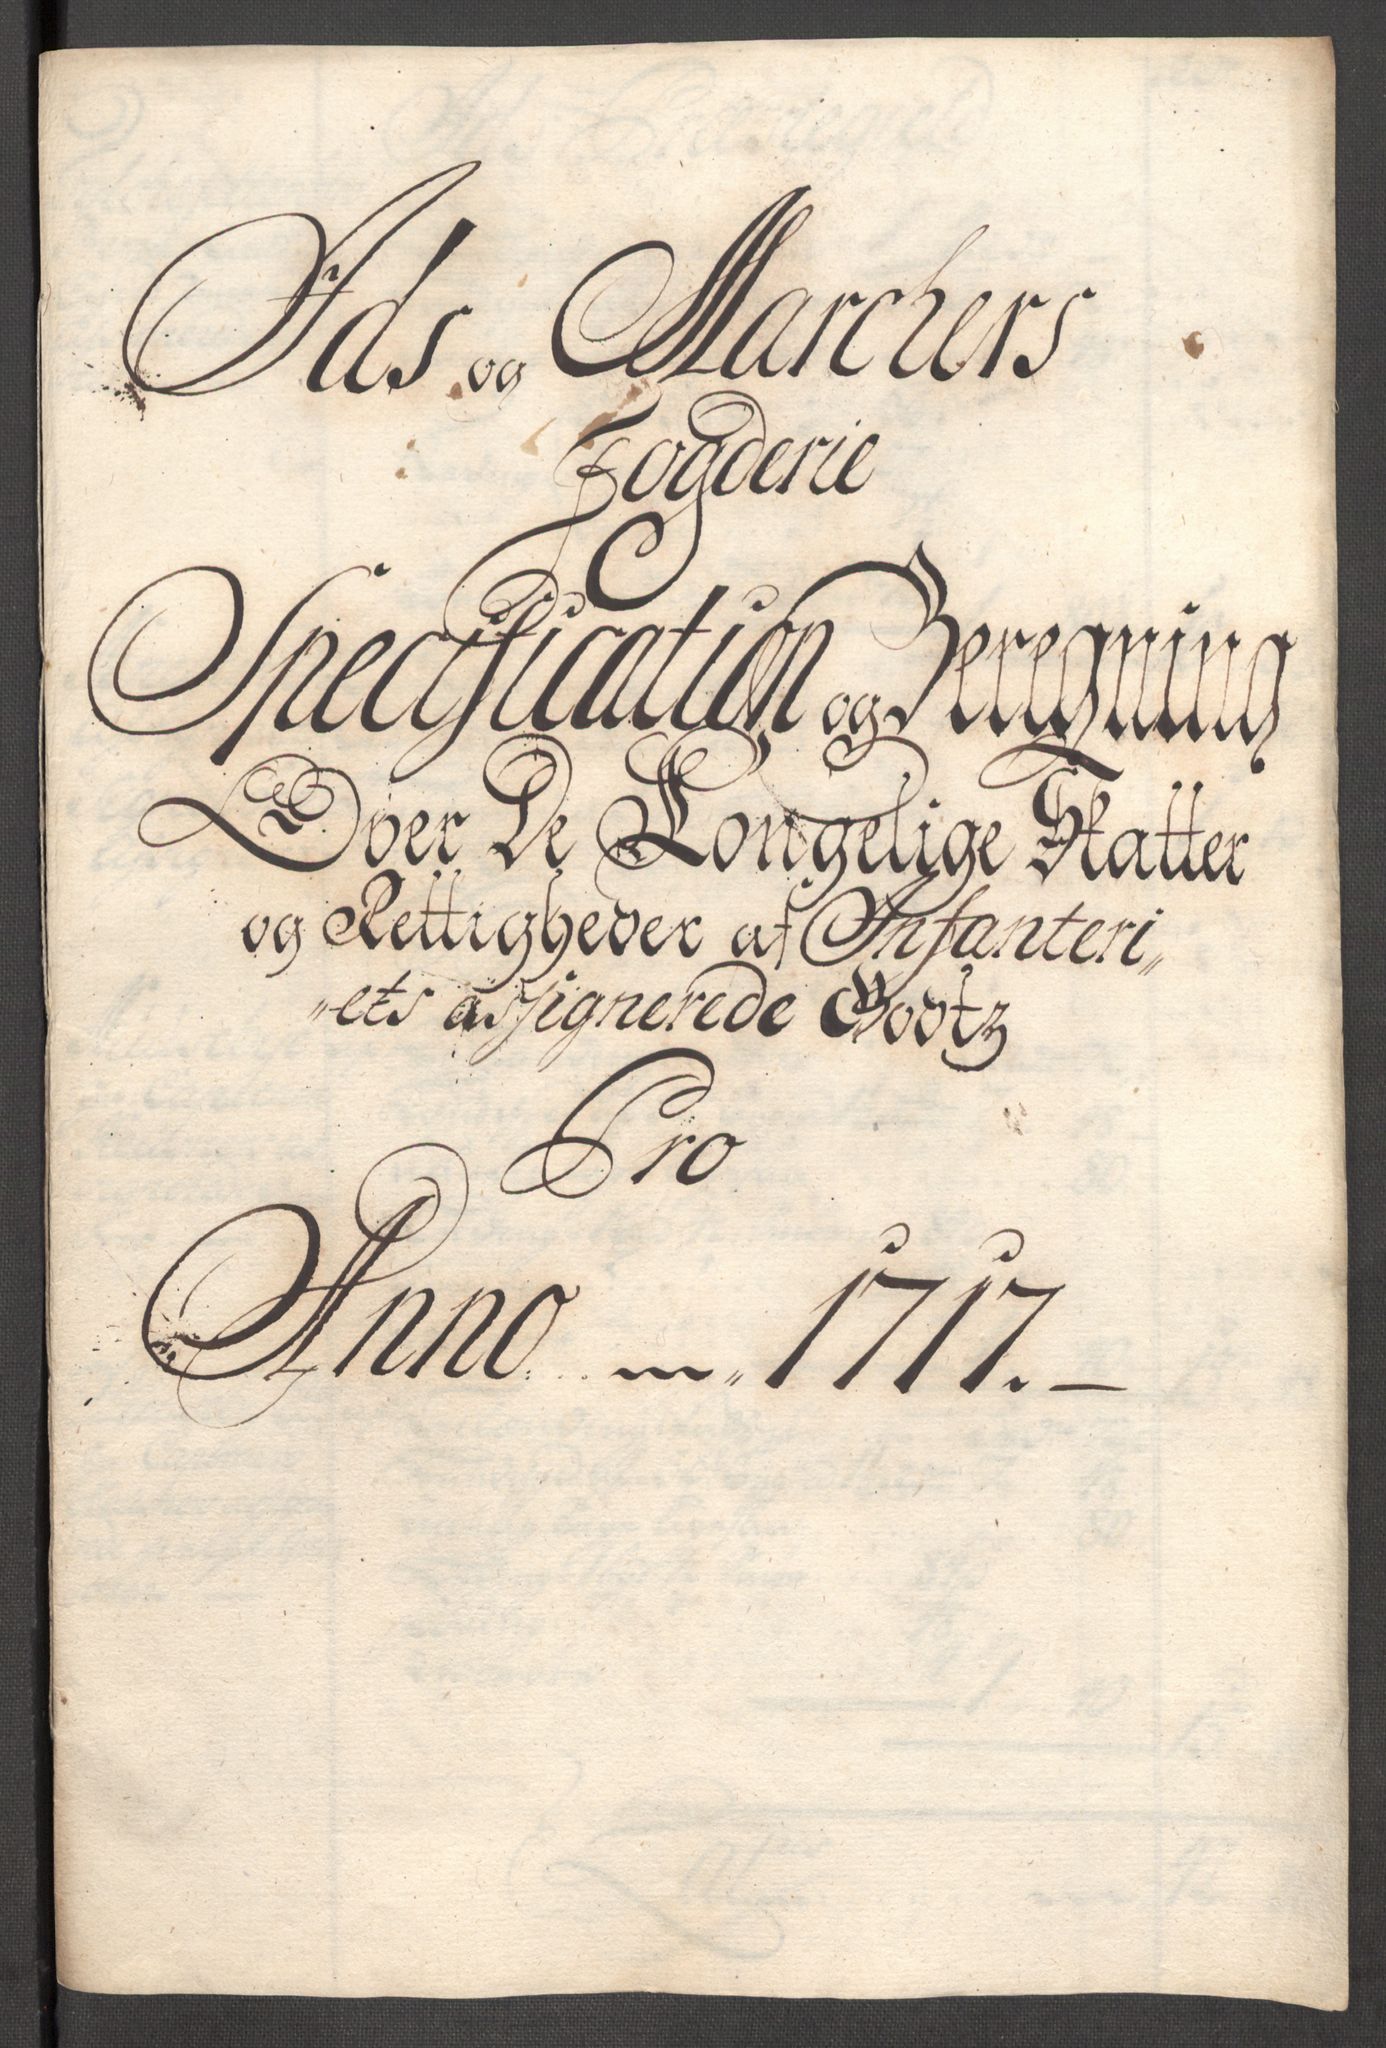 Ids og Marchers
Fogderie
Specification og Beregning
Over De Kongelige Skatter
og Rettigheder af Infanteri„
„ets assignerede Godtz
Pro
Anno 1717.